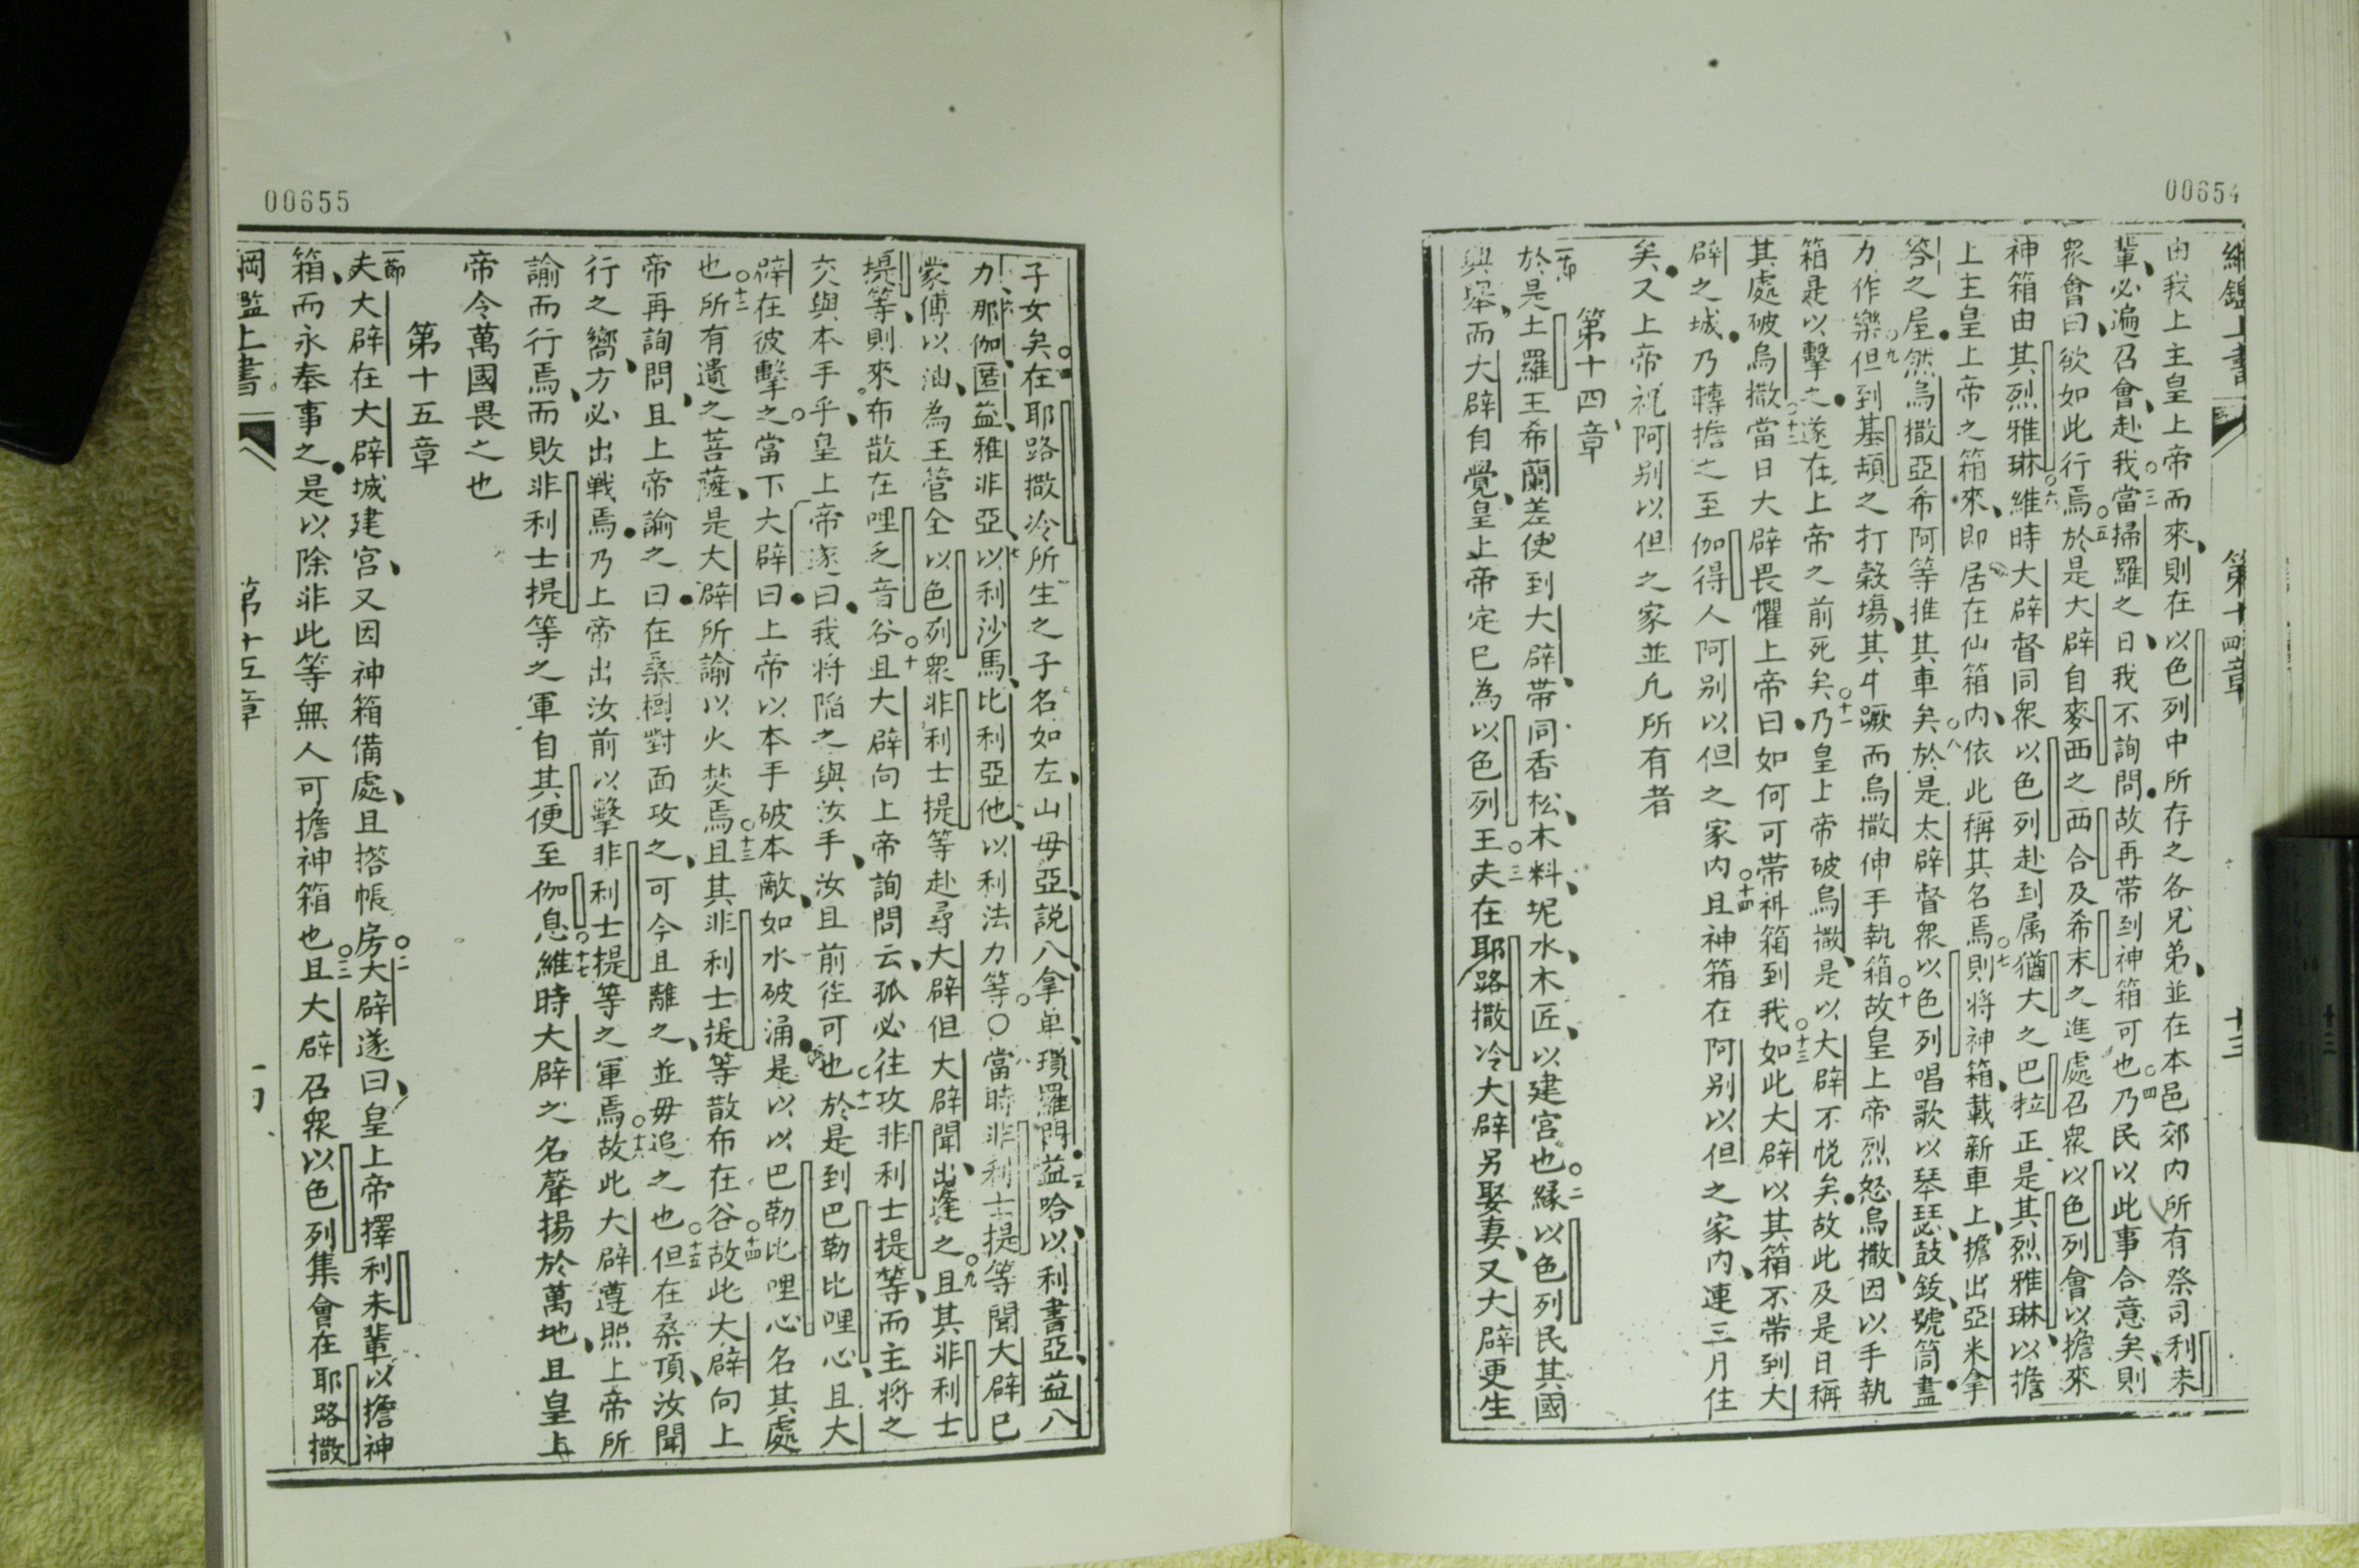 00654
維鑑上書 第十四章 十三
由我上主皇上帝而來則在以色列中所存之各兄弟並在本邑郊內所有祭司利未
輩必遍召會赴我○三當掃羅之日我不詢問故再帶到神箱可也○四乃民以此事合意矣則
眾會曰欲如此行焉○五於是大辟自麥西之西合及希末之進處召眾以色列會以擔來
神箱由其烈雅琳○六維時大辟督同眾以色列赴到属猶大之巴拉正是其烈雅琳以擔
上主皇上帝之箱來即居在仙箱內依此稱其名焉○七則將神箱載新車上擔出亞米拿
答之屋然烏撒亞希阿等推其車矣○八於是大辟督眾以色列唱歌以琴瑟鼓鈸號筒盡
力作樂○九但到基頓之打穀塲其牛蹶而烏撒伸手執箱○十故皇上帝烈怒烏撒因以手執
箱是以擊之遂在上帝之前死矣○十一乃皇上帝破烏撒是以大辟不悅矣故此及是日稱
其處破烏撒○十二當日大辟畏懼上帝曰如何可帶神箱到我○十三如此大辟以其箱不帶到大
辟之城乃轉擔之至伽得人阿别以但之家內○十四且神箱在阿别以但之家內連三月住
矣又上帝祝阿别以但之家並凢所有者
第十四章
一節於是土羅王希蘭差使到大辟帶同香松木料坭水木匠以建宮也○二緣以色列民其國
與舉而大辟自覺皇上帝定已為以色列王○三夫在耶路撒冷大辟另娶妻又大辟更生
00655
子女矣○四在耶路撒冷所生之子名如左山毋亞說八拿单瑣羅門○五益哈以利書亞益八
力○六那伽匿益雅非亞○七以利沙馬比利亞他以利法力等○八當時非利士提等聞大辟已
蒙傅以油為王管全以色列眾非利士提等赴尋大辟但大辟聞出逢之○九且其非利士
提等則來布散在哩乏音谷○十且大辟向上帝詢問云孤必往攻非利士提等而主將之
交與本手乎皇上帝遂曰我將陷之與汝手汝且前徃可也○十一於是到巴勒比哩心且大
辟在彼擊之當下大辟曰上帝以本手破本敵如水破涌是以以巴勒比哩心名其處
也○十二所有遺之菩薩是大辟所諭以火焚焉○十三且其非利士提等散布在谷○十四故此大辟向上
帝再詢問且上帝諭之曰在桑樹對面攻之可今且離之並毋追之也○十五但在桑頂汝聞
行之嚮方必出戰焉乃上帝出汝前以擊非利士提等之軍焉○十六故此大辟遵照上帝所
諭而行焉而敗非利士提等之軍自其便至伽息○十七維時大辟之名聲揚於萬地且皇上
帝令萬國畏之也
第十五章
一節夫大辟在大辟城建宮又因神箱備處且搭帳房○二大辟遂曰皇上帝擇利未輩以擔神
箱而永奉事之是以除非此等無人可擔神箱也○三且大辟召眾以色列集會在耶路撒
綱鑑上書 第十五章